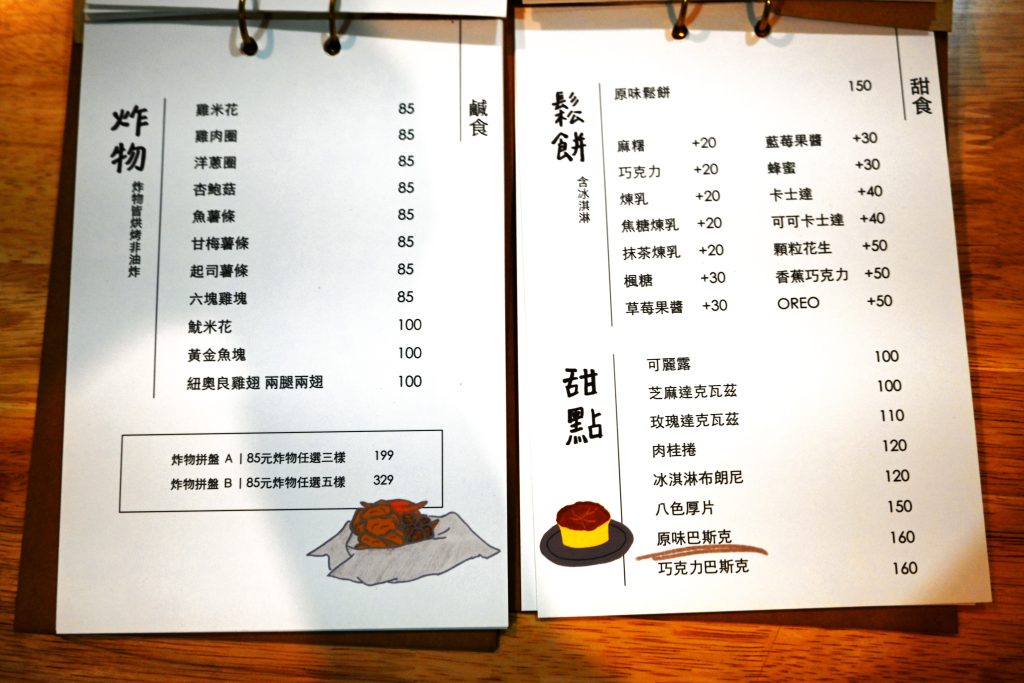 鹹食
炸物
炸物皆烘烤非油炸
雞米花 85
雞肉圈 85
洋蔥圈 85
杏鮑菇 85
魚薯條 85
甘梅薯條 85
起司薯條 85
六塊雞塊 85
魷米花 100
黃金魚塊 100
紐奧良雞翅 兩腿兩翅 100
炸物拼盤 A | 85元炸物任選三樣 199
炸物拼盤 B | 85元炸物任選五樣 329
甜食
鬆餅
含冰淇淋
原味鬆餅 150
麻糬 +20 藍莓果醬 +30
巧克力 +20 蜂蜜 +30
煉乳 +20 卡士達 +40
焦糖煉乳 +20 可可卡士達 +40
抹茶煉乳 +20 顆粒花生 +50
楓糖 +30 香蕉巧克力 +50
草莓果醬 +30 OREO +50
甜點
可麗露 100
芝麻達克瓦茲 100
玫瑰達克瓦茲 110
肉桂捲 120
冰淇淋布朗尼 120
八色厚片 150
原味巴斯克 160
巧克力巴斯克 160